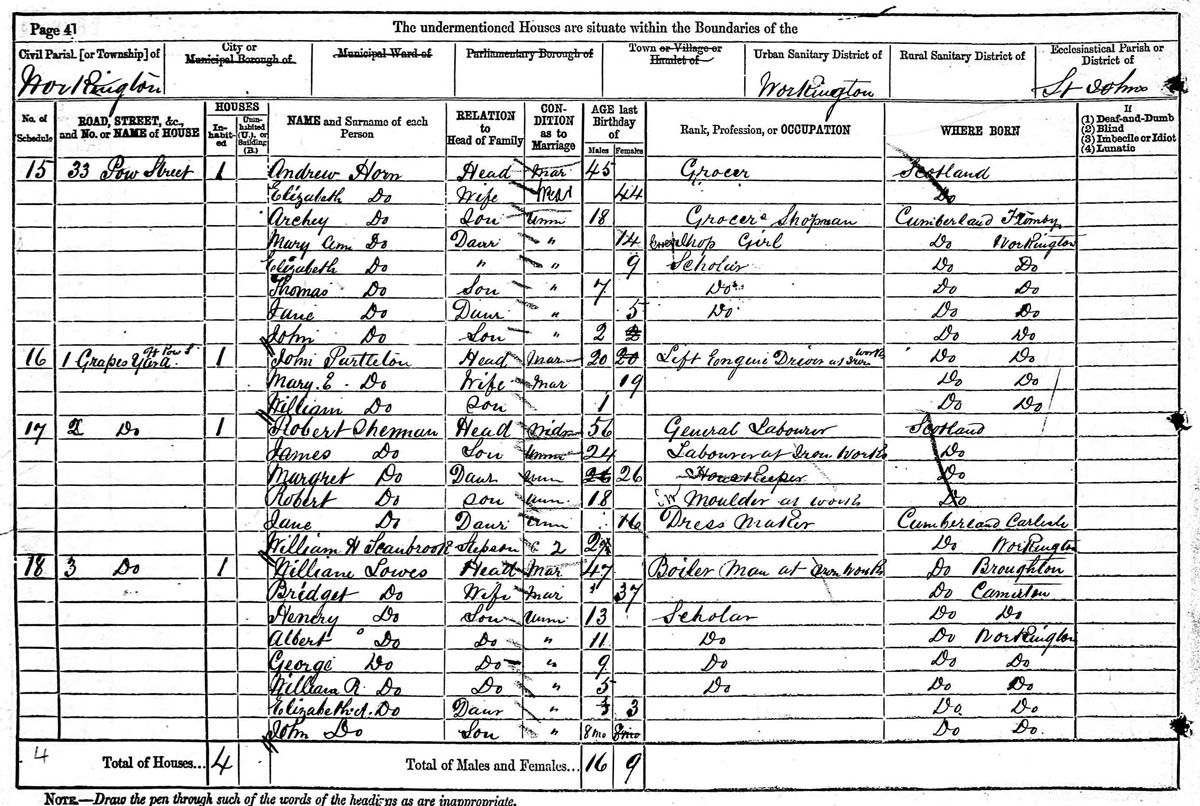 Page 41
The undermentioned Houses are situate within the Boundaries of the
Civil Parish [or Township] of
City or Municipal Borough of
Municipal Ward of
Parliamentary Borough of
Town or Village or Hamlet of
Urban Sanitary District of
Rural Sanitary District of
Ecclesiastical Parish or District of
Workington
Workington
St Johns
No. of Schedule
ROAD, STREET, &c., and No. or NAME of HOUSE
HOUSES
Inhabited
Uninhabited (U.), or Building (B.)
NAME and Surname of each Person
RELATION to Head of Family
CONDITION as to Marriage
AGE last Birthday of
Males
Females
Rank, Profession, or OCCUPATION
WHERE BORN
If
(1) Deaf-and-Dumb
(2) Blind
(3) Imbecile or Idiot
(4) Lunatic
15 33 Pow Street 1 Andrew Horn Head Mar 45 Grocer Scotland
Elizabeth Do Wife Mar 44 Do
Archey Do Son Unm 18 Grocer's Shopman Cumberland Flimby
Mary Ann Do Daur " 14 Shop Girl Do Workington
Elizabeth Do " " 9 Scholar Do Do
Thomas Do Son " 7 Do. Do Do
Jane Do Daur " 5 Do Do Do
John Do Son " 2 2 Do Do
16 1 Grapes Yard 1 John Head Mar 20 20 Lift Engine Driver at Iron works Do Do
Mary. E. Do Wife Mar 19 Do Do
William Do Son 1 Do Do
17 2 Do 1 Robert Sherman Head Widr 56 General Labourer Scotland
James Do Son Unm 24 Labourer at Iron Works Do
Margret Do Daur Unm 26 26 Housekeeper Do
Robert Do Son Unm. 18 Moulder at works Do
Jane Do Daur Unm 16 Dress Maker Cumberland Carlisle
William H Scanbrook Stepson 2 Do Workington
18 3 Do 1 William Lowes Head Mar 47 Boiler Man at Iron Works Do Broughton
Bridget Do Wife Mar 37 Do Camerton
Henery Do Son Unm 13 Scholar Do Do
Albert Do Do " 11 Do Do Workington
George Do Do " 9 Do Do Do
William R. Do Do " 5 Do Do Do
Elizabeth A. Do Daur " 3 3 Do Do
John Do Son " 8 mo 8 mo Do Do
4 Total of Houses... 4 Total of Males and Females... 16 9
NOTE.—Draw the pen through such of the words of the headings as are inappropriate.